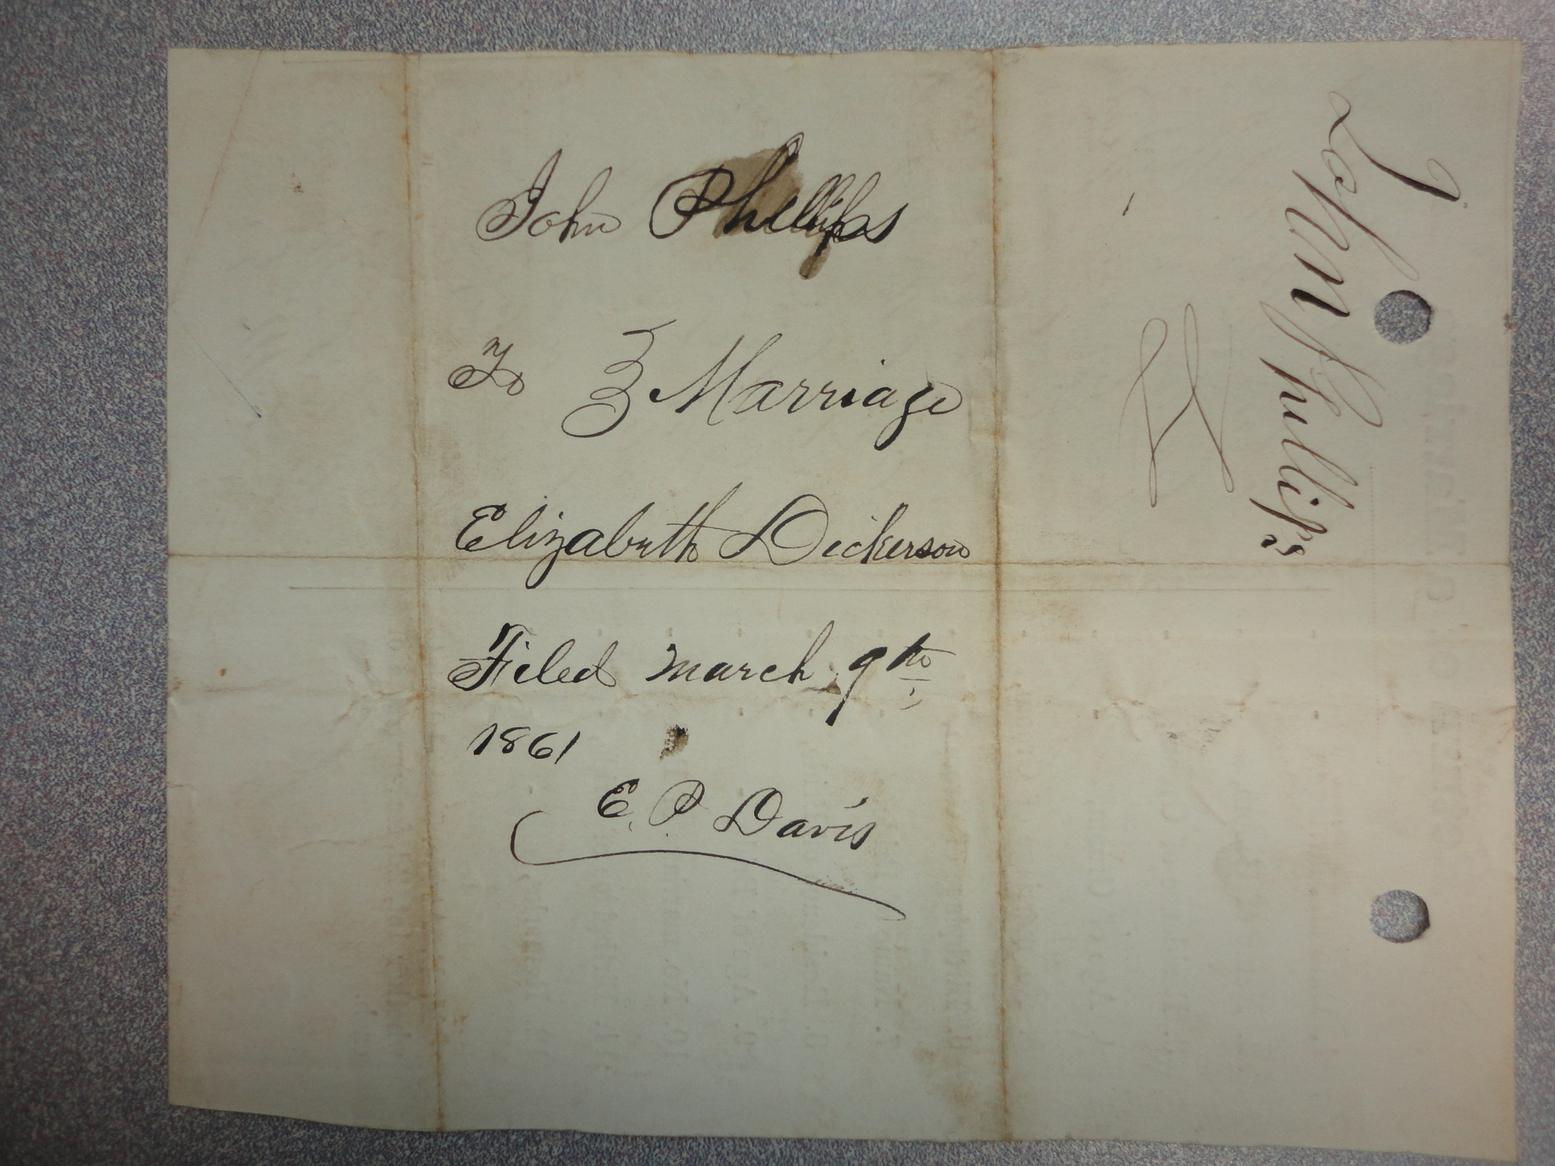 John Phillips
To } Marriage
Elizabeth Dickerson
Filed March 9th
1861
E. P. Davis
John Phillips